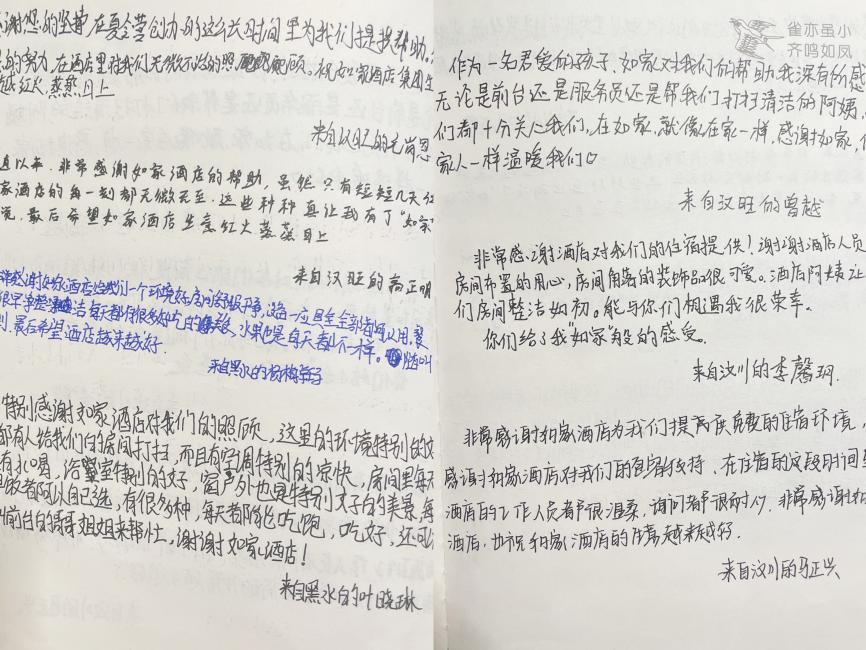 谢您的坚持在夏令营创办的这么长时间里为我们提供帮助,
的努力,在酒店里对我们无微不至的照顾。祝如家酒店集团生
越红火,蒸蒸日上
来自汉旺的尤尚恩
直以来,非常感谢如家酒店的帮助,虽然只有短短几天红
家酒店的每一刻都无微不至,这些种种真让我有了“如家”
觉,最后希望如家酒店生意红火蒸蒸日上
来自汉旺的高正明
非常感谢如家酒店给我们一个环境好房间舒服干净,洗浴一应具全全部都可以用,
每天都有很多好吃的,水果也是每天都不一样。
到,最后希望酒店越来越好
来自黑水的杨梅
特别感谢如家酒店对我们的照顾,这里的环境特别的好
都有人给我们的房间打扫,而且有空调特别的凉快,房间里每天
有水喝,浴室特别的好,窗户外也是特别美好的美景,每
饭都可以自己选,有很多种,每天都能吃饱,吃好,还可以
叫前台的哥哥姐姐来帮忙,谢谢如家酒店!
来自黑水的叶晓琳
雀亦虽小
齐鸣如凤
作为一名君爱的孩子,如家对我们的帮助我深有的感
无论是前台还是服务员还是帮我们打扫清洁的阿姨,
们都十分关心我们,在如家,就像在家一样,感谢如家,像
家人一样温暖我们♡
来自汉旺的曾越
非常感谢酒店对我们的住宿提供!谢谢酒店人员
房间布置的用心,房间角落的装饰品很可爱。酒店阿姨让
们房间整洁如初。能与你们相遇我很荣幸。
你们给了我“如家”般的感受。
来自汶川的李馨玥.
非常感谢和家酒店为我们提高度免费的住宿环境,
感谢和家酒店对我们的包容与支持,在住宿的这段时间里
酒店的工作人员都很温柔,询问都很耐心,非常感谢和
酒店,也祝和家酒店的生意越来越好.
来自汶川的马正兴